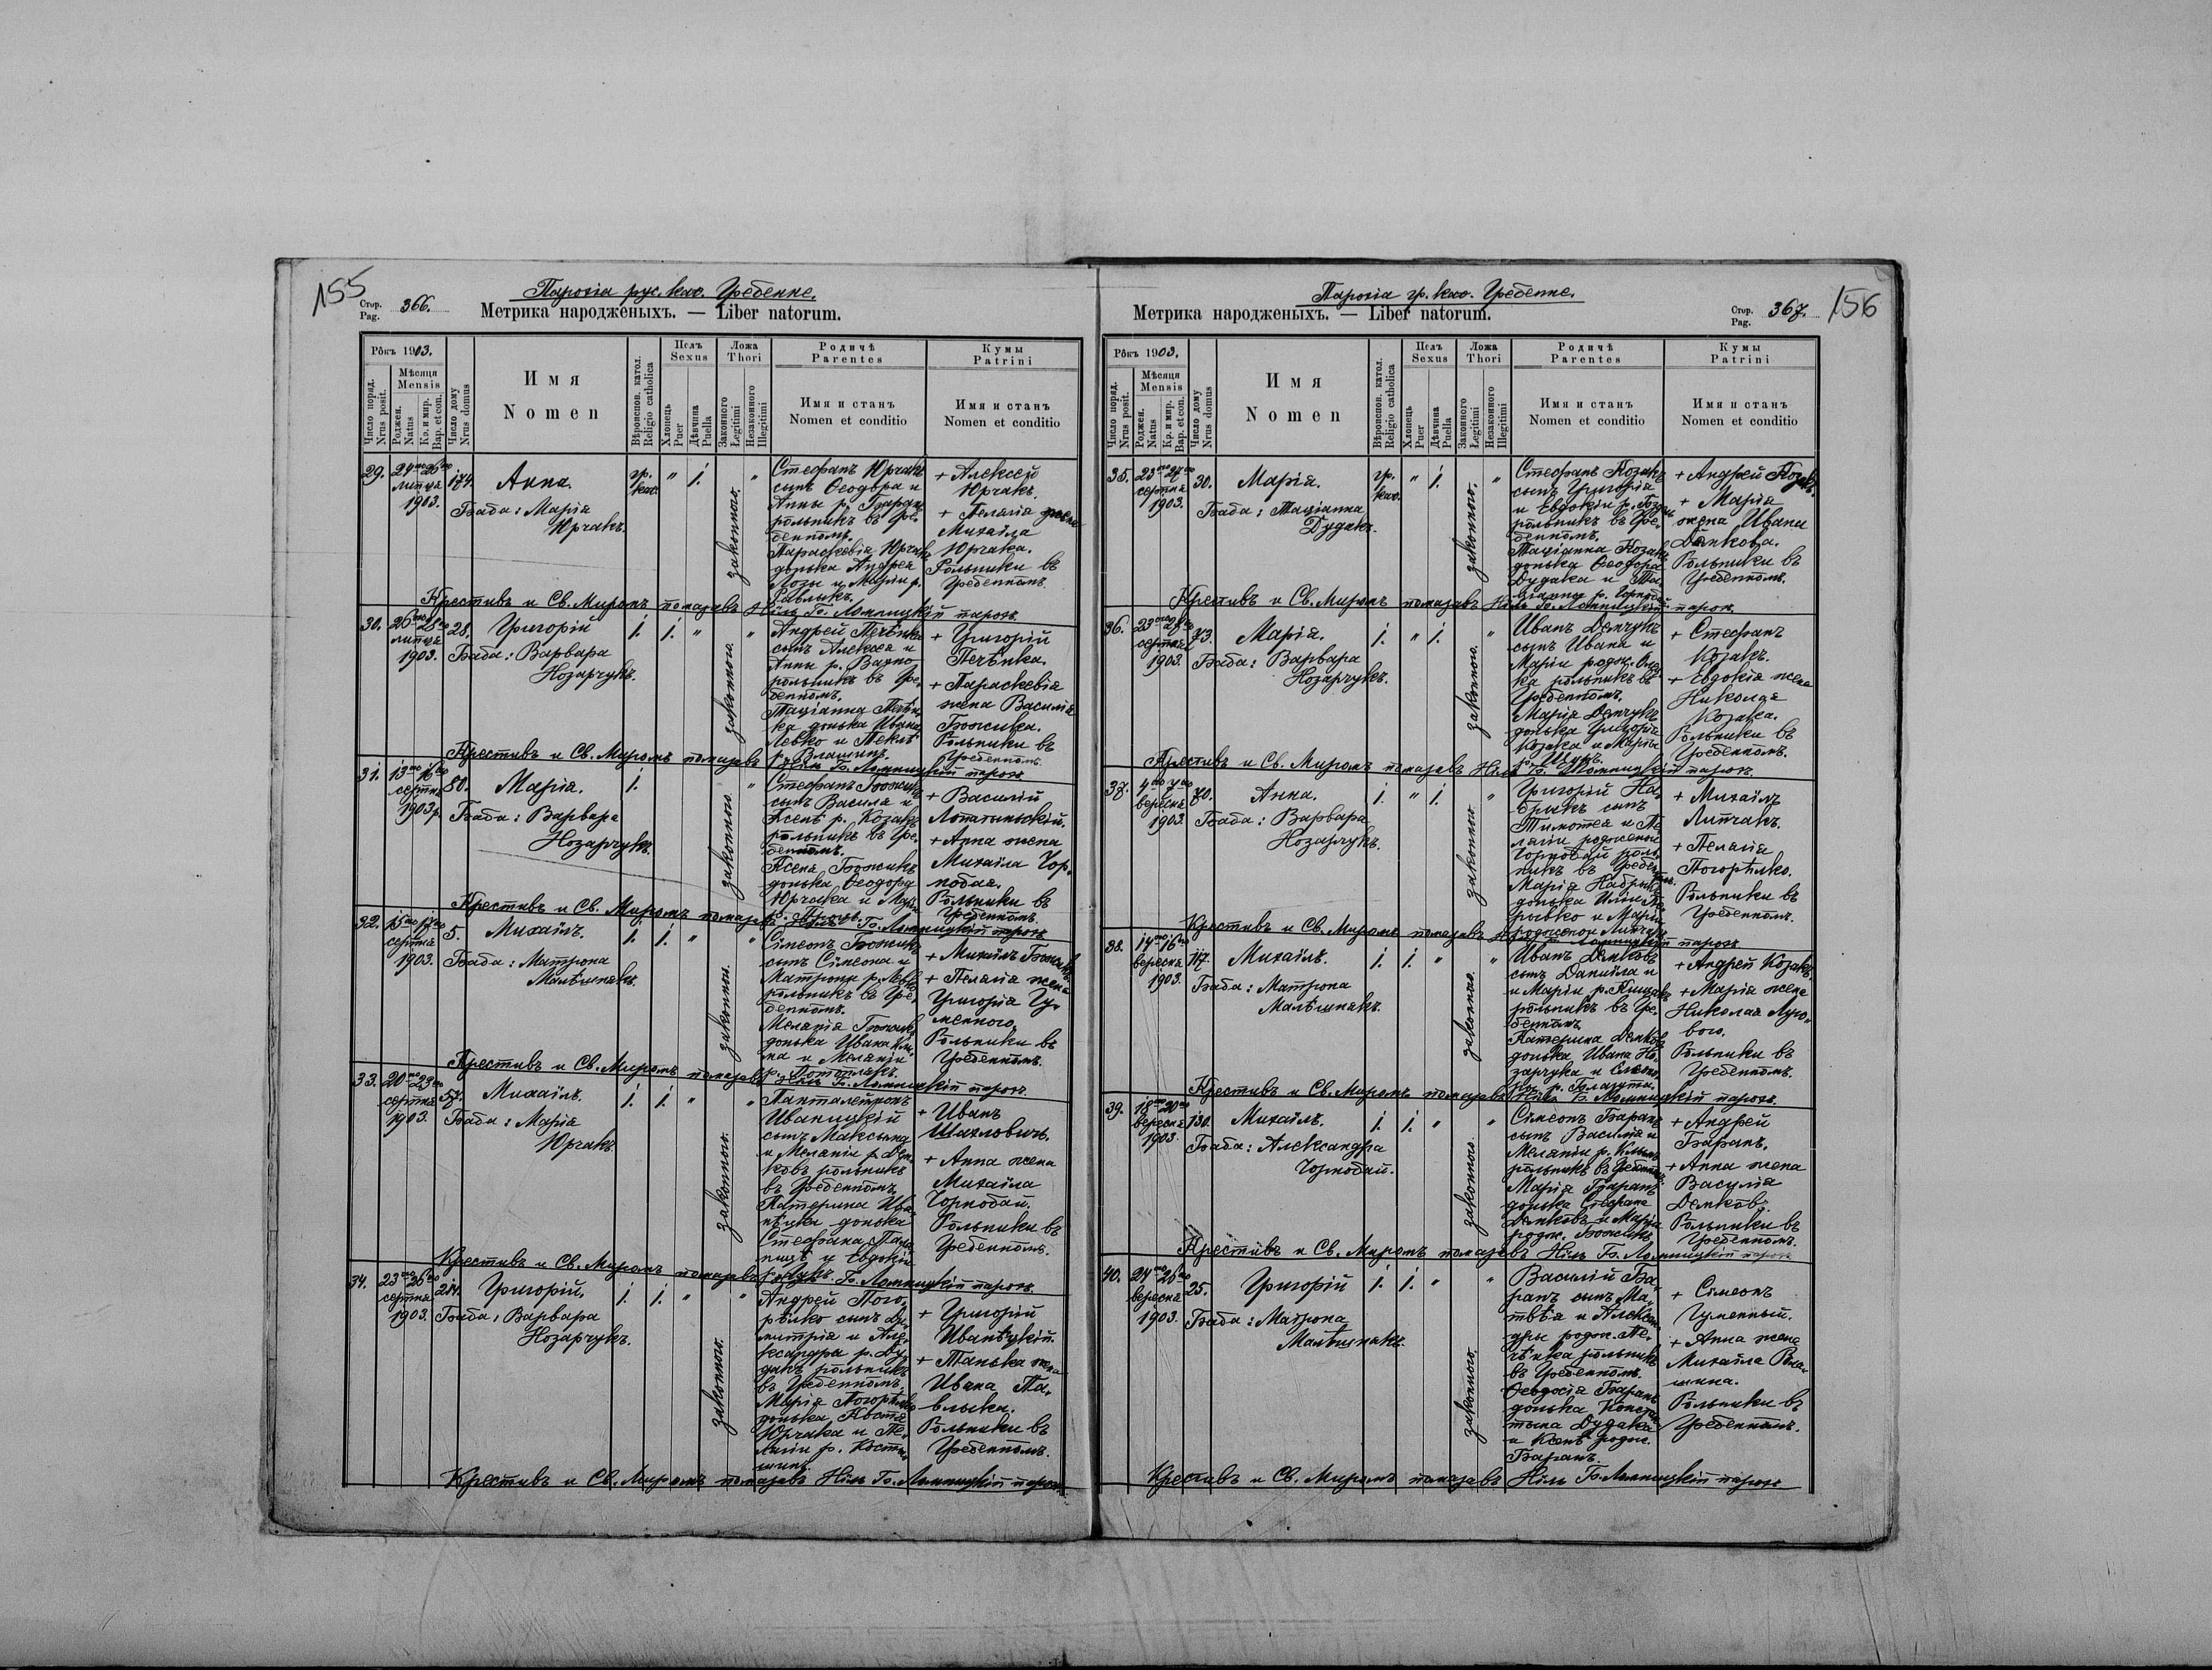 155
Парохія рус. кат. Гребенне.
Стор. Pag. 366.
Метрика народженыхъ. — Liber natorum.
Рôкъ 1903.
Число поряд. Nrus posit.
Мѣсяця Mensis
Роджен. Natus
Кр. и мир. Bap. et con.
Число дому Nrus domus
Имя
Nomen
Вѣроиспов. катол. Religio catholica
Полъ Sexus
Хлопець Puer
Дѣвчина Puella
Ложа Thori
Законного Legitimi
Незаконного Illegitimi
Родичѣ
Parentes
Имя и станъ
Nomen et conditio
Кумы
Patrini
Имя и станъ
Nomen et conditio
29. 24го 26го липця 1903. 174.
Анна.
Баба: Марія
Юрчакъ.
гр. кат. " 1. законного. "
Стефанъ Юрчакъ
сынъ Ѳеодора и
Анны р.
рольникъ въ Гре-
бенномъ.
Параскевія Юрчакъ
донька Андрея
Лозы и Маріи р.
Павликъ.
+ Алексей
Юрчакъ.
+ Пелагія жена
Михаила
Юрчака.
Рôльники въ
Гребенномъ.
Крестивъ и Св. Миромъ помазавъ Ніль Гр. Ломницкій парох.
30. 26го 28го липця 1903. 28.
Григорій
Баба: Варвара
Нозарчукъ.
1. 1. " законного. "
Андрей Печѣнка
сынъ Алексея и
Анны р.
рольникъ въ Гре-
бенномъ.
Таціанна Печѣн-
ка донька Ивана
Левко и Теклѣ
+ Григорій
Печѣнка.
+ Параскевія
жена Василія
Божика.
Рôльники въ
Гребенномъ.
Крестивъ и Св. Миромъ помазавъ Ніль Гр. Ломницкій парох.
31. 13го 16го серпня 1903 р. 80.
Марія.
Баба: Варвара
Нозарчукъ.
1. законного "
Стефанъ Божикъ
сынъ Василя и
Ксенѣ р. Козакъ
рольникъ въ Гре-
бенномъ.
Ксеня Божикъ
донька Ѳеодора
Юрчака и
+ Василій
Лопатыньскій.
+ Анна жена
Михаила Чор-
нобая.
Рôльники въ
Гребенномъ.
Крестивъ и Св. Миромъ помазавъ Ніль Гр. Ломницкій парох.
32. 15го 17го серпня 1903. 5.
Михаилъ.
Баба: Матрона
Малѣшнакъ.
1. 1. " законного. "
Сімеонъ Божикъ
сынъ Сімеона и
Матроны р. Левко
рольникъ въ Гре-
бенномъ.
Меланія Божикъ
донька Ивана
и Меланіи
+ Михаилъ Божикъ
+ Пелагія жена
Григорія Гу-
менного.
Рôльники въ
Гребенномъ.
Крестивъ и Св. Миромъ помазавъ Ніль Гр. Ломницкій парох.
33. 20го 23го серпня 1903. 57.
Михаилъ.
Баба: Марія
Юрчакъ.
1. 1. " законного. "
Панталеймонъ
Иваницкій
сынъ Максыма
и Меланіи р. Дем-
ковъ рольникъ
въ Гребенномъ.
Катерина Ива-
нѣцка донька
Стефана
и Евдокіи
+ Иванъ
Шахловичъ.
+ Анна жена
Михаила
Чорнобай.
Рôльники въ
Гребенномъ.
Крестивъ и Св. Миромъ помазавъ Ніль Гр. Ломницкій парох.
34. 23го 26го серпня 1903. 214.
Григорій.
Баба: Варвара
Нозарчукъ.
1. 1. " законного. "
Андрей Пого-
рѣлко сынъ Ди-
митрія и Але-
ксандры р. Ду-
дакъ рольникъ
въ Гребенномъ.
Марія Погорѣлко
донька Костя
Юрчака и Пе-
лагіи р.
+ Григорій
Иванѣцкій.
+ Танька жена
Ивана Па-
влыка.
Рôльники въ
Гребенномъ.
Крестивъ и Св. Миромъ помазавъ Ніль Гр. Ломницкій парох.
Парохія гр. кат. Гребенне.
Стор. Pag. 367.
156
Метрика народженыхъ. — Liber natorum.
Рôкъ 1903.
Число поряд. Nrus posit.
Мѣсяця Mensis
Роджен. Natus
Кр. и мир. Bap. et con.
Число дому Nrus domus
Имя
Nomen
Вѣроиспов. катол. Religio catholica
Полъ Sexus
Хлопець Puer
Дѣвчина Puella
Ложа Thori
Законного Legitimi
Незаконного Illegitimi
Родичѣ
Parentes
Имя и станъ
Nomen et conditio
Кумы
Patrini
Имя и станъ
Nomen et conditio
35. 23го 27го серпня 1903. 30.
Марія.
Баба: Таціанна
Дудакъ.
гр. кат. " 1. законного. "
Стефанъ Козакъ
сынъ Григорія
и Евдокіи р.
рольникъ въ Гре-
бенномъ.
Таціанна Козакъ
донька Ѳеодора
Дудака и Та-
ціанны р.
+ Андрей Козакъ.
+ Марія
жена Ивана
Дêмкова.
Рôльники въ
Гребенномъ.
Крестивъ и Св. Миромъ помазавъ Ніль Гр. Ломницкій парох.
36. 23го 27го серпня 1903. 73.
Марія.
Баба: Варвара
Нозарчукъ.
1. " 1. законного. "
Иванъ Демчукъ
сынъ Ивана и
Маріи родж.
рольникъ въ
Гребенномъ.
Марія Демчукъ
донька Григорія
Козака и Маріи
р.
+ Стефанъ
Козакъ.
+ Евдокія жена
Николая
Козака.
Рôльники въ
Гребенномъ.
Крестивъ и Св. Миромъ помазавъ Ніль Гр. Ломницкій парох.
37. 4го 7го вересня 1903. 70.
Анна.
Баба: Варвара
Нозарчукъ.
1. " 1. законного "
Григорій На-
брикъ сынъ
Тимотея и Пе-
лагіи родженои
Чорнобай роль-
никъ въ Гребен.
Марія Набрикъ
донька Иліи
и Маріи
родженои Липчакъ
+ Михаилъ
Липчакъ.
+ Пелагія
Погорѣлко.
Рôльники въ
Гребенномъ.
Крестивъ и Св. Миромъ помазавъ Ніль Гр. Ломницкій парох.
38. 14го 16го вересня 1903. 117.
Михаилъ.
Баба: Матрона
Малѣшнакъ.
1. 1. " законного. "
Иванъ Демковъ
сынъ Даниила и
и Маріи р.
рольникъ въ Гре-
бенномъ
Катерина Демковъ
донька Ивана Но-
зарчука и
р.
+ Андрей Козакъ.
+ Марія жена
Николая Луго-
вого.
Рôльники въ
Гребенномъ.
Крестивъ и Св. Миромъ помазавъ Ніль Гр. Ломницкій парох.
39. 18го 20го вересня 1903. 130.
Михаилъ.
Баба: Александра
Чорнобай.
1. 1. " законного. "
Сімеонъ Баранъ
сынъ Василія и
Меланіи р. Климъ
рольникъ въ Гребенномъ.
Марія Баранъ
донька Стефана
Демковъ и Маріи
родж. Божикъ
+ Андрей
Баранъ.
+ Анна жена
Василія
Демковъ.
Рôльники въ
Гребенномъ.
Крестивъ и Св. Миромъ помазавъ Ніль Гр. Ломницкій парох
40. 24го 26го вересня 1903. 25.
Григорій
Баба: Матрона
Малѣшнакъ.
1. 1. " законного. "
Василій Ба-
ранъ сынъ Ма-
твѣя и Алексан-
дры родж. Пе-
чѣнка рольникъ
въ Гребенномъ.
Ѳеодосія Баранъ
донька Констан-
тына Дудака
и Ксенѣ родж.
Баранъ.
+ Сімеонъ
Гуменный.
+ Анна жена
Михаила
Рôльники въ
Гребенномъ.
Крестивъ и Св. Миромъ помазавъ Ніль Гр. Ломницкій парох